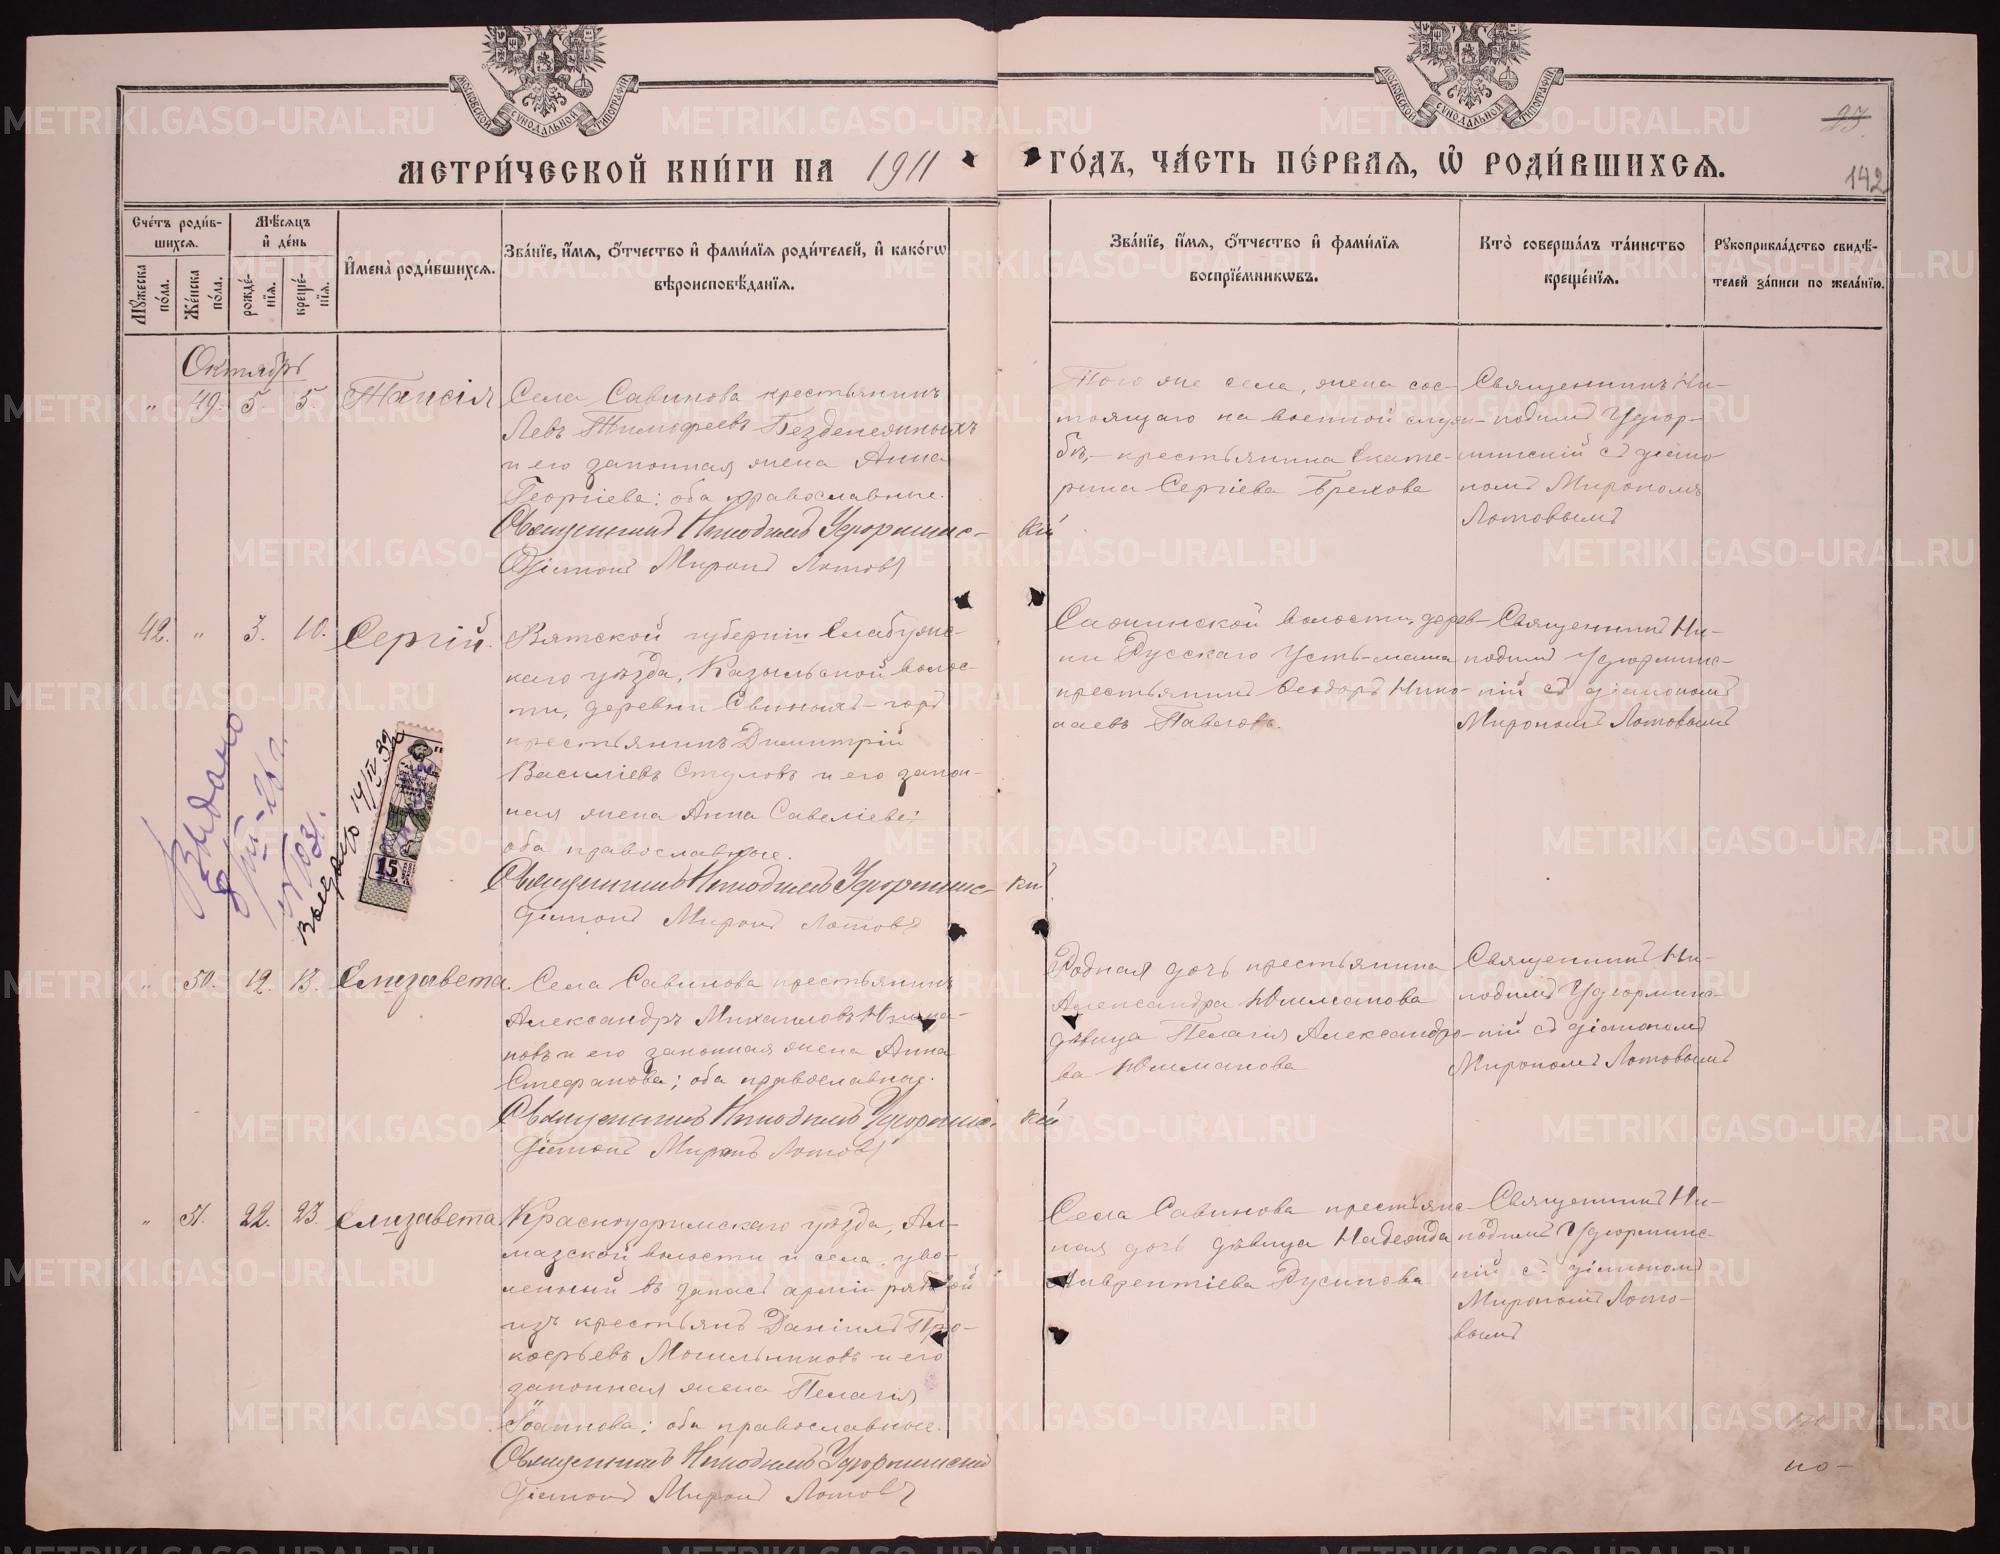 МЕТРИ́ЧЕСКОЙ КНИ́ГИ НА 1911
ГО́ДЪ, ЧА́СТЬ ПЕ́РВАЯ, Ѡ҆ РОДИ́ВШИХСЯ.
23.
142
Сче́тъ роди́в-
шихся.
Мѣ́сяцъ
и҆ де́нь
Мꙋ́жеска по́ла.
Же́нска по́ла.
рожде́-
нїя.
креще́-
нїя.
И҆мена̀ роди́вшихся.
Зва́нїе, и҆́мя, ѻ҆́тчество и҆ фами́лїя роди́телей, и҆ како́гѡ
вѣроисповѣ́данїя.
Зва́нїе, и҆́мя, ѻ҆́тчество и҆ фами́лїя
воспрїе́мникѡвъ.
Кто̀ соверша́лъ та́инство
креще́нїя.
Рꙋкоприкла́дство свидѣ́-
телей за́писи по жела́нїю.
Октябрь
„ 49. 5. 5 Таисія
Села Савинова крестьянинъ
Левъ Тимофеевъ Безденежныхъ
и его законная жена Анна
Георгіева: оба православные.
Священникъ Никодимъ Удюрминс-
кій
Діаконъ Миронъ Лотовъ
Того же села, жена сос-
тоящаго на военной служ-
бѣ,- крестьянина Екате-
рина Сергіева Брехова
Священникъ Ни-
кодимъ Удюр-
минскій съ діако-
номъ Мирономъ
Лотовымъ
42. „ 3. 10. Сергій.
Вятской губерніи Елабужс-
каго уѣзда, Казыльской волос-
ти, деревни Свиныхъ-горъ
крестьянинъ Димитрій
Василіевъ Стуловъ и его закон-
ная жена Анна Савеліева:
оба православные.
Священникъ Никодимъ Удюрминс-
кій
Діаконъ Миронъ Лотовъ
Сажинской волости, дерев-
ни Русскаго Усть-маша
крестьянинъ Ѳеодоръ Нико-
лаевъ Павловъ.
Священникъ Ни-
кодимъ Удюрминс-
кій съ діакономъ
Мирономъ Лотовымъ
Выдано
выдано 14/IV-32
15
„ 50. 12. 13. Елизавета.
Села Савинова крестьянинъ
Александръ Михаиловъ Юлма-
новъ и его законная жена Анна
Стефанова; оба православные.
Священникъ Никодимъ Удюрминс-
кій
Діаконъ Миронъ Лотовъ
Родная дочь крестьянина
Александра Юлманова
дѣвица Пелагія Александро-
ва Юлманова
Священникъ Ни-
кодимъ Удюрминс-
кій съ діакономъ
Мирономъ Лотовымъ
„ 51. 22. 23. Елизавета
Красноуфимскаго уѣзда, Ал-
мазской волости и села, уво-
ленный въ запасъ арміи рядовой
изъ крестьянъ Даніилъ Про-
кофьевъ Мыльниковъ и его
законная жена Пелагія
Іоаннова; оба православные.
Священникъ Никодимъ Удюрминскій
Діаконъ Миронъ Лотовъ
Села Савинова крестьянс-
кая дочь дѣвица Надежда
Лаврентіева Русинова
Священникъ Ни-
кодимъ Удюрминс-
кій съ діакономъ
Мирономъ Лото-
вымъ
по-